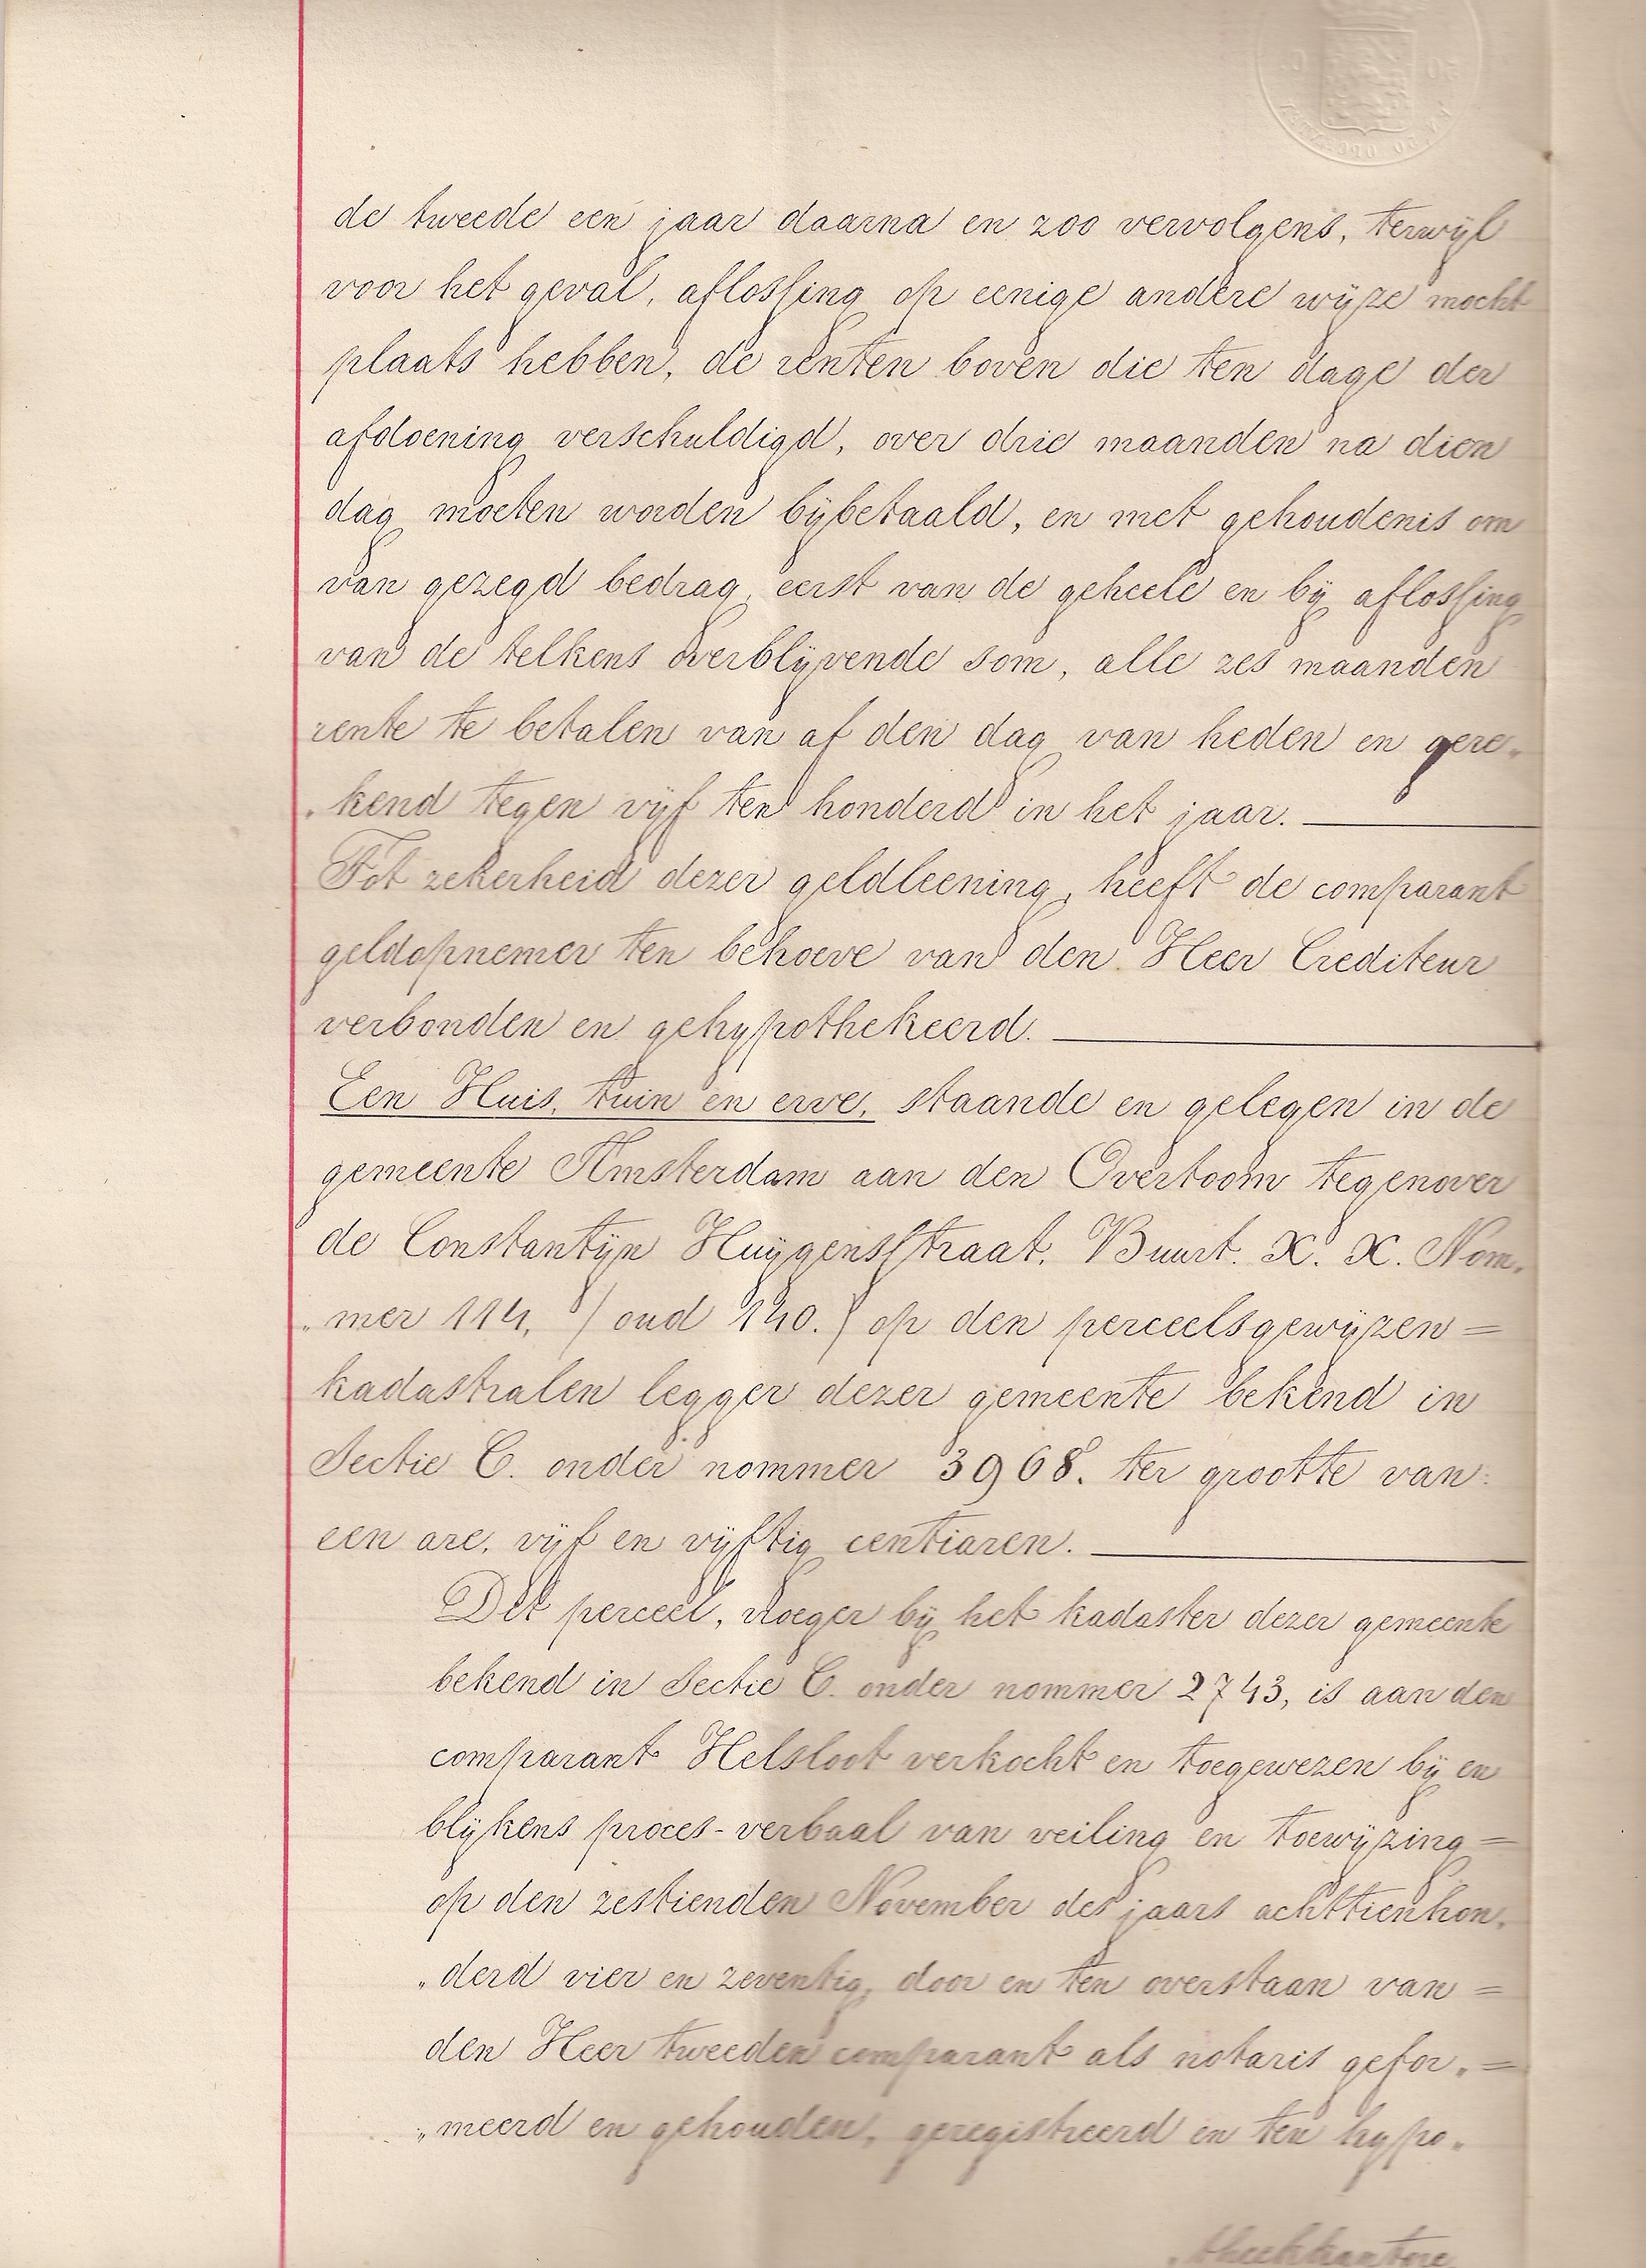 de tweede een jaar daarna en zoo vervolgens, terwijl
voor het geval, aflossing op eenige andere wijze mocht
plaats hebben, de renten boven die ten dage der
afdoening verschuldigd, over drie maanden na dien
dag moeten worden bijbetaald, en met gehoudenis om
van gezegd bedrag, eerst van de geheele en bij aflossing
van de telkens overblijvende som, alle zes maanden
rente te betalen van af den dag van heden en gere„
„kend tegen vijf ten honderd in het jaar.
Tot zekerheid dezer geldleening, heeft de comparant
geldopnemer ten behoeve van den Heer Crediteur
verbonden en gehypothekeerd.
Een Huis, tuin en erve, staande en gelegen in de
gemeente Amsterdam aan den Overtoom tegenover
de Constantijn Huijgensstraat, Buurt. X. X. Nom„
„mer 114, (oud 140.) op den perceelsgewijzen =
kadastralen legger dezer gemeente bekend in
Sectie C. onder nommer 3968. ter grootte van
een are, vijf en vijftig centiaren.
Dit perceel, vroeger bij het kadaster dezer gemeente
bekend in Sectie C. onder nommer 2743, is aan den
comparant Helsloot verkocht en toegewezen bij en
blijkens proces-verbaal van veiling en toewijzing =
op den zestienden November des jaars achttienhon„
„derd vier en zeventig, door en ten overstaan van =
den Heer tweeden comparant als notaris gefor„ =
„meerd en gehouden, geregistreerd en ten hypo„
„theekkantore